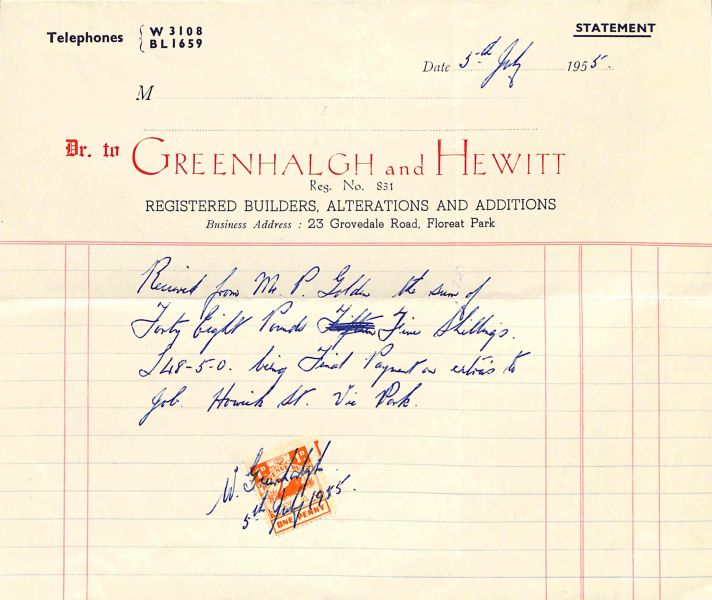 STATEMENT
Telephones { W 3108
BL 1659
Date 5th July 1955.
M
Dr. to GREENHALGH and HEWITT
Reg. No. 831
REGISTERED BUILDERS, ALTERATIONS AND ADDITIONS
Business Address : 23 Grovedale Road, Floreat Park
Received from Mr. P. Golden the sum of
Forty Eight Pounds Fifteen Five Shillings.
£48-5-0. being Final Payment on extras to
job. Howick St. Vic Park.
W. Greenhalgh.
5th July 1955.
ONE PENNY